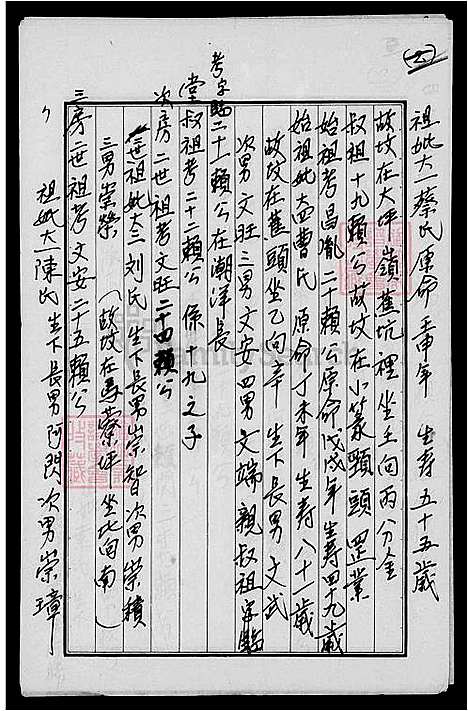 (六)
祖妣大一蔡氏原命壬申年 生寿五十五歲
故坟在大坪嶺蕉坑裡坐壬向丙分金
叔祖十九賴公故坟在小篆頸頭罡業
始祖考昌胤二十賴公原命戊戌年生寿四十九歲
始祖妣大四曹氏 原命丁未年生寿八十一歲
故坟在蕉頭坐乙向辛 生下長男文武
次男文旺三男文安四男文端親叔祖字
考字 二十一賴公在潮洋長
堂叔祖考二十二賴公係十九之子
次房二世祖考文旺二十四賴公
二世祖妣大三刘氏 生下長男崇智次男崇積
三男崇榮(故坟在馬寮坪坐北向南)
三房二世祖考文安二十五賴公
祖妣大一陳氏 生下長男阿閃次男崇璋